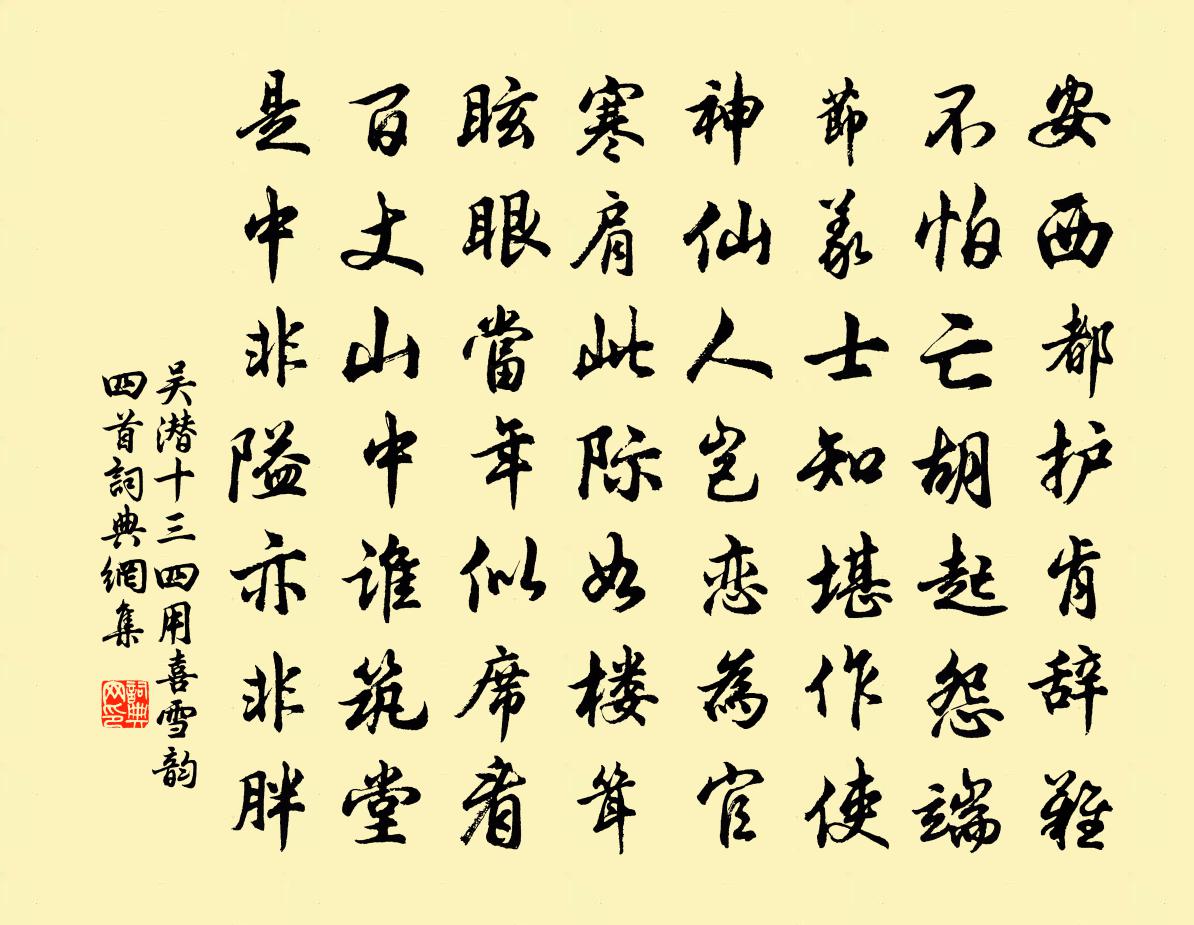 安西都护肯辞难
不怕亡胡起怨端
节义士知堪作使
神仙人岂恋为官
寒肩此际如楼耸
眩眼當年似席看
百丈山中谁筑堂
是中非隘亦非胖
吴潜十三四用喜雪韵
四首詞典網集
詞典